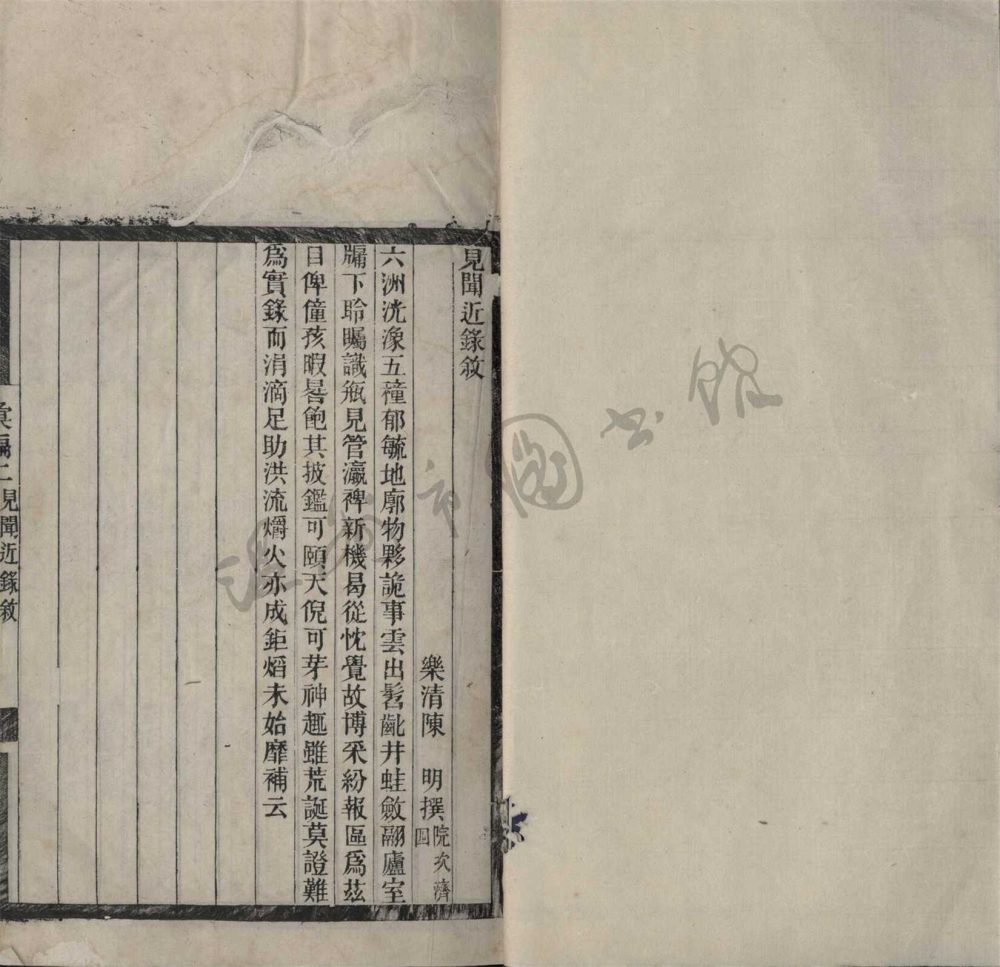 見聞近錄敘
樂清陳 明撰院次濟
六洲洸潒五穜郁毓地廓物夥詭事雲出髫齔井蛙斂翮廬室
牖下聆矚識瓶見管瀛裨新機曷從忱覺故博采紛報區爲茲
目俾僮孩暇晷飽其披鑑可頤天倪可芽神趣雖荒誕莫證難
爲實錄而涓滴足助洪流爝火亦成鉅熖未始靡補云
彙編二見聞近錄敘
市圖書館